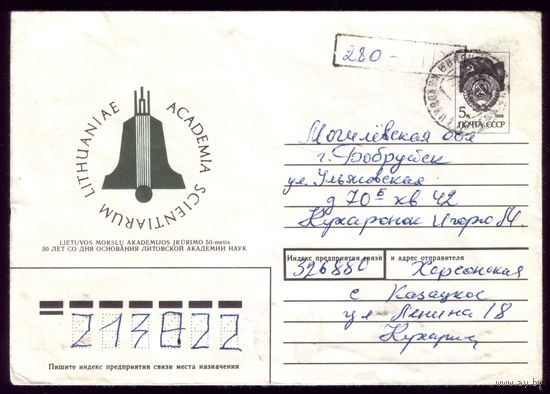 280-
5к
ПОЧТА СССР
1988
LITHUANIAE
ACADEMIA
SCIENTIARUM
LIETUVOS MOKSLŲ AKADEMIJOS ĮKŪRIMO 50-metis
50 ЛЕТ СО ДНЯ ОСНОВАНИЯ ЛИТОВСКОЙ АКАДЕМИИ НАУК
Могилёвская обл
г. Бобруйск
ул. Ульяновская
д 70 Б кв 42
Индекс предприятия связи и адрес отправителя
326880 Херсонская
с Казацкое
ул Ленина 18
213822
Пишите индекс предприятия связи места назначения